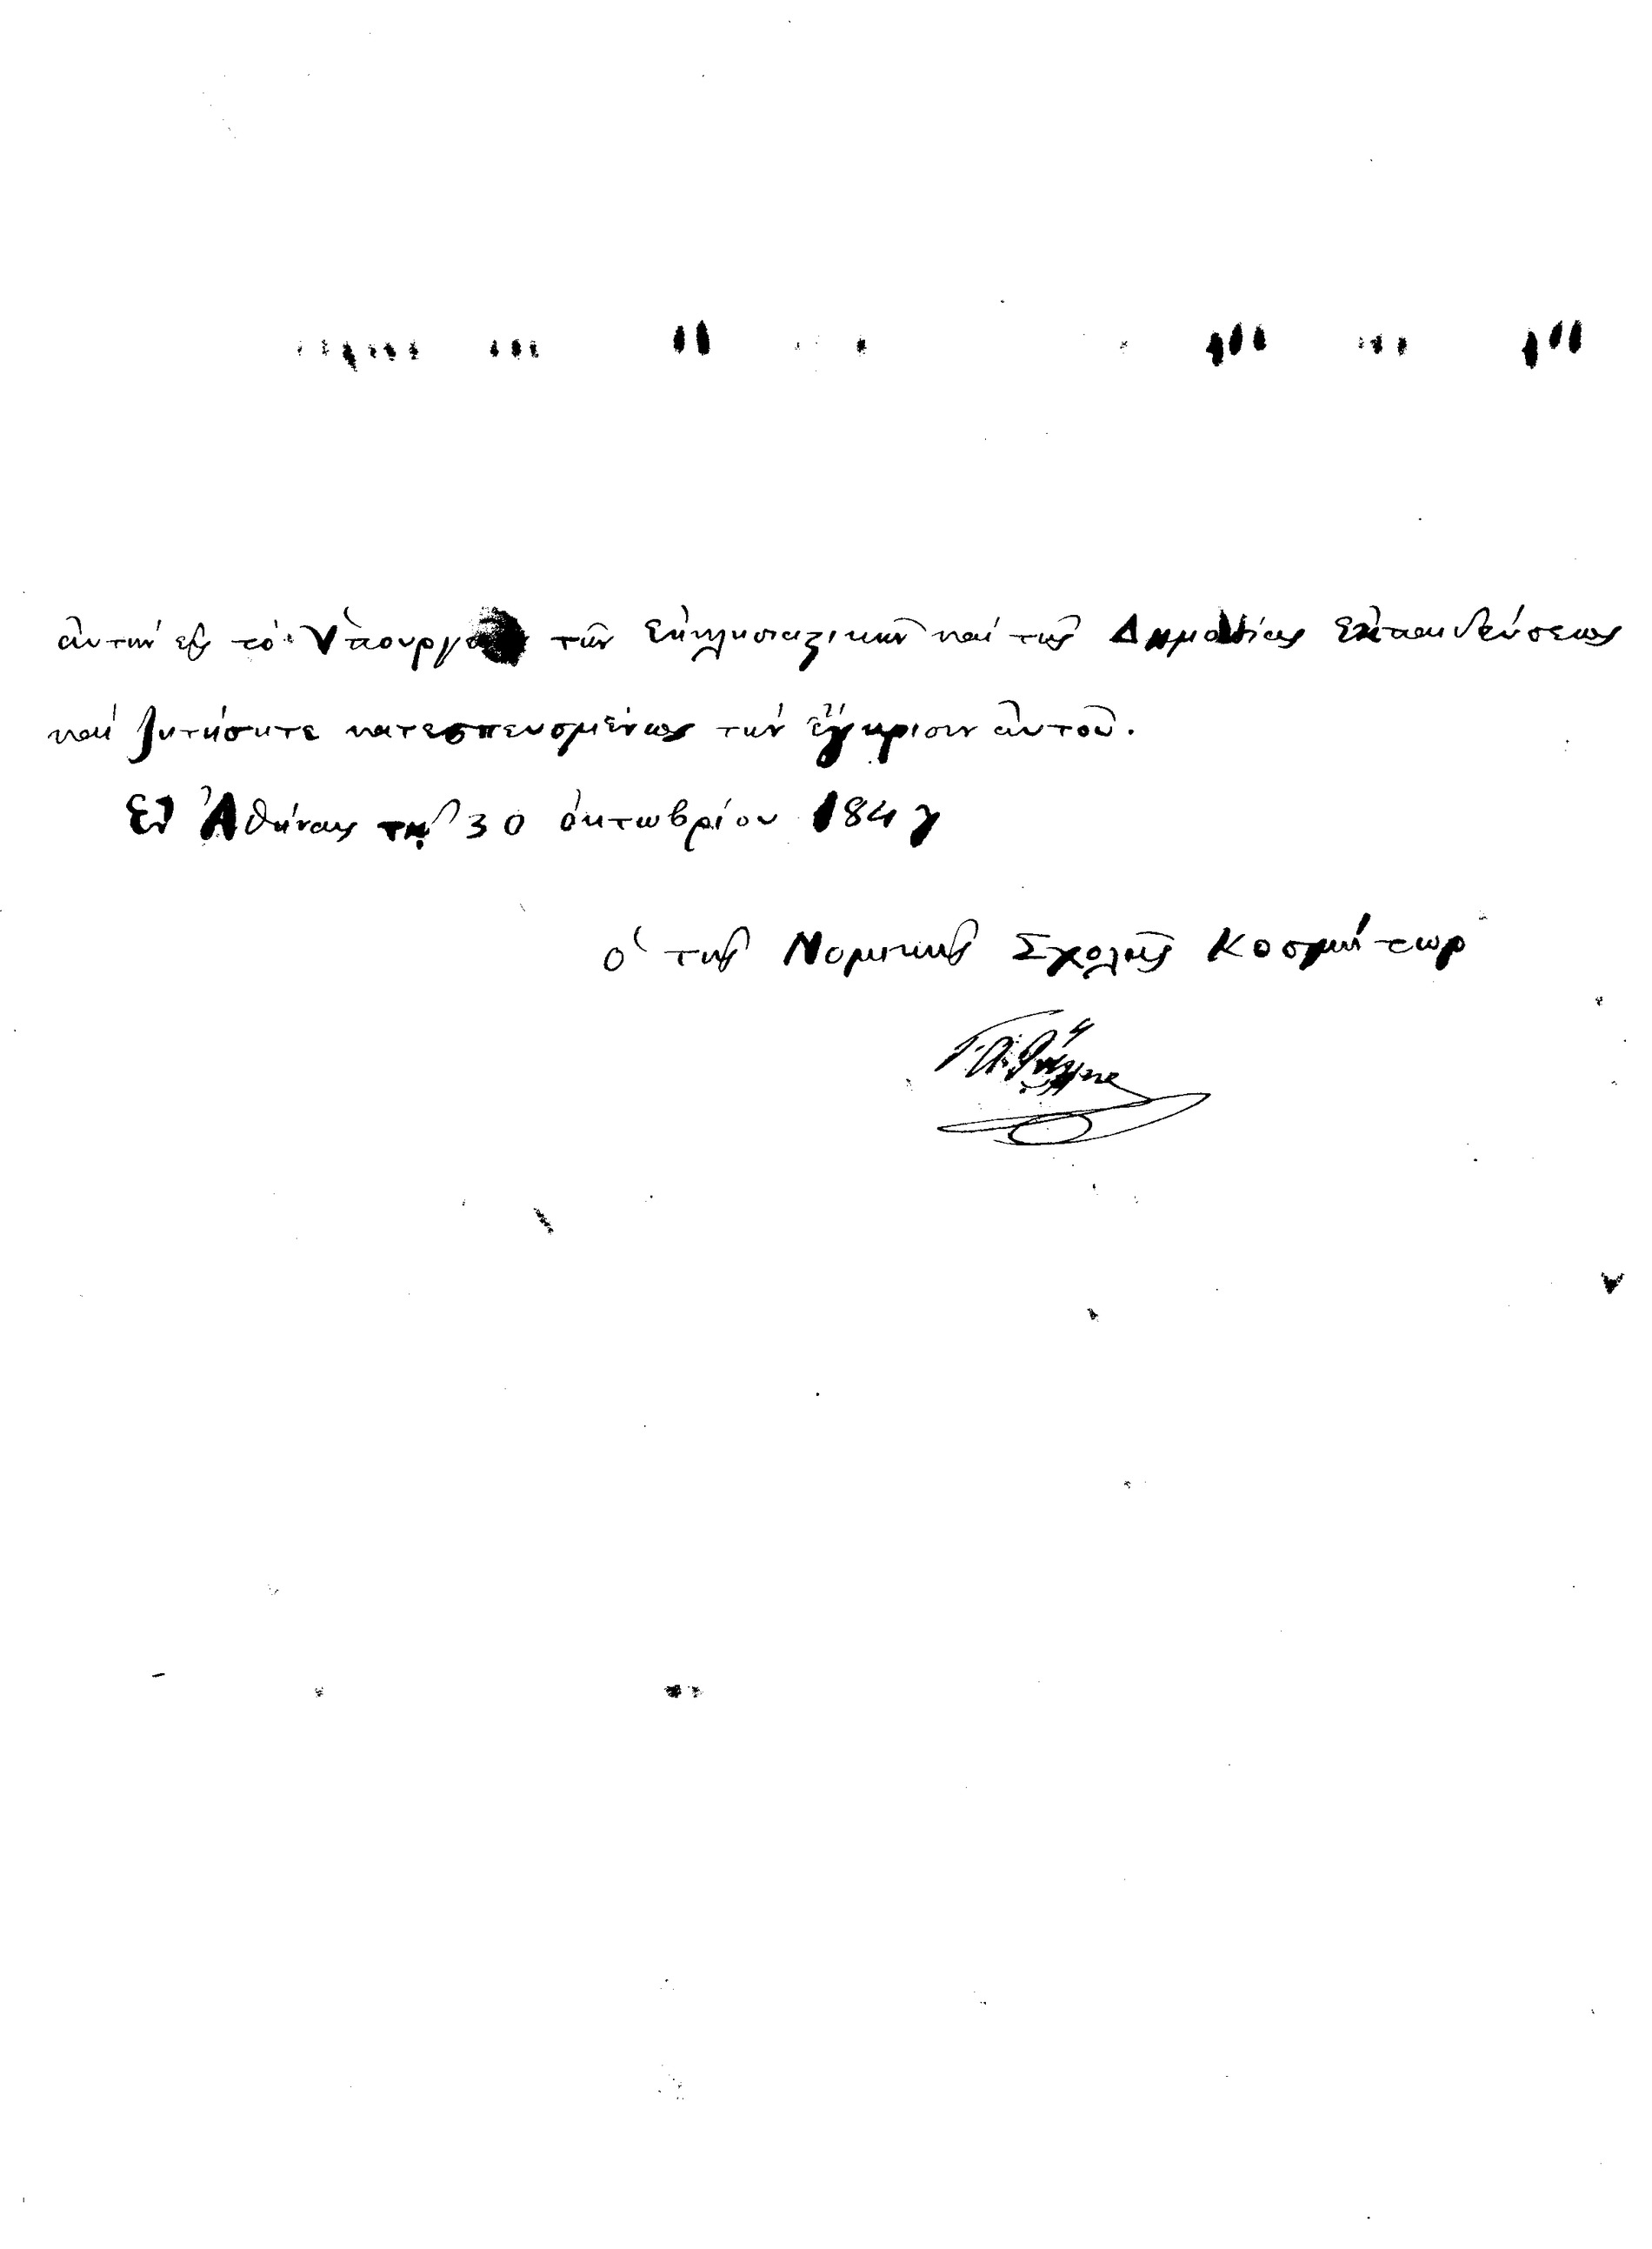 αὐτὴν εἰς τὸ Ὑπουργεῖον τῶν Ἐκκλησιαστικῶν καὶ τῆς Δημοσίας Ἐκπαιδεύσεως
καὶ ζητήσητε κατεσπευσμένως τὴν ἔγκρισιν αὐτοῦ.
Ἐν Ἀθήναις τῇ 30 ὀκτωβρίου 184
ὁ τῆς Νομικῆς Σχολῆς Κοσμήτωρ